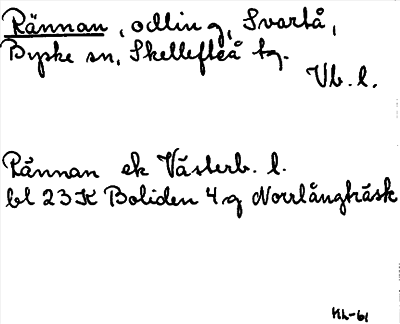 Rännan, odling, Svartå,
Byske sn, Skellefteå tg.
Vb. l.
Rännan ek Västerb. l.
bl 23K Boliden 4g Norrlångträsk
HL-61